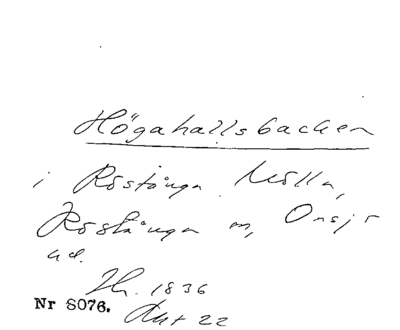 Högahallsbacken
i Röstånga Mölla,
Röstånga sn, Onsjö
hd.
1836
Nr 8076. Akt 22